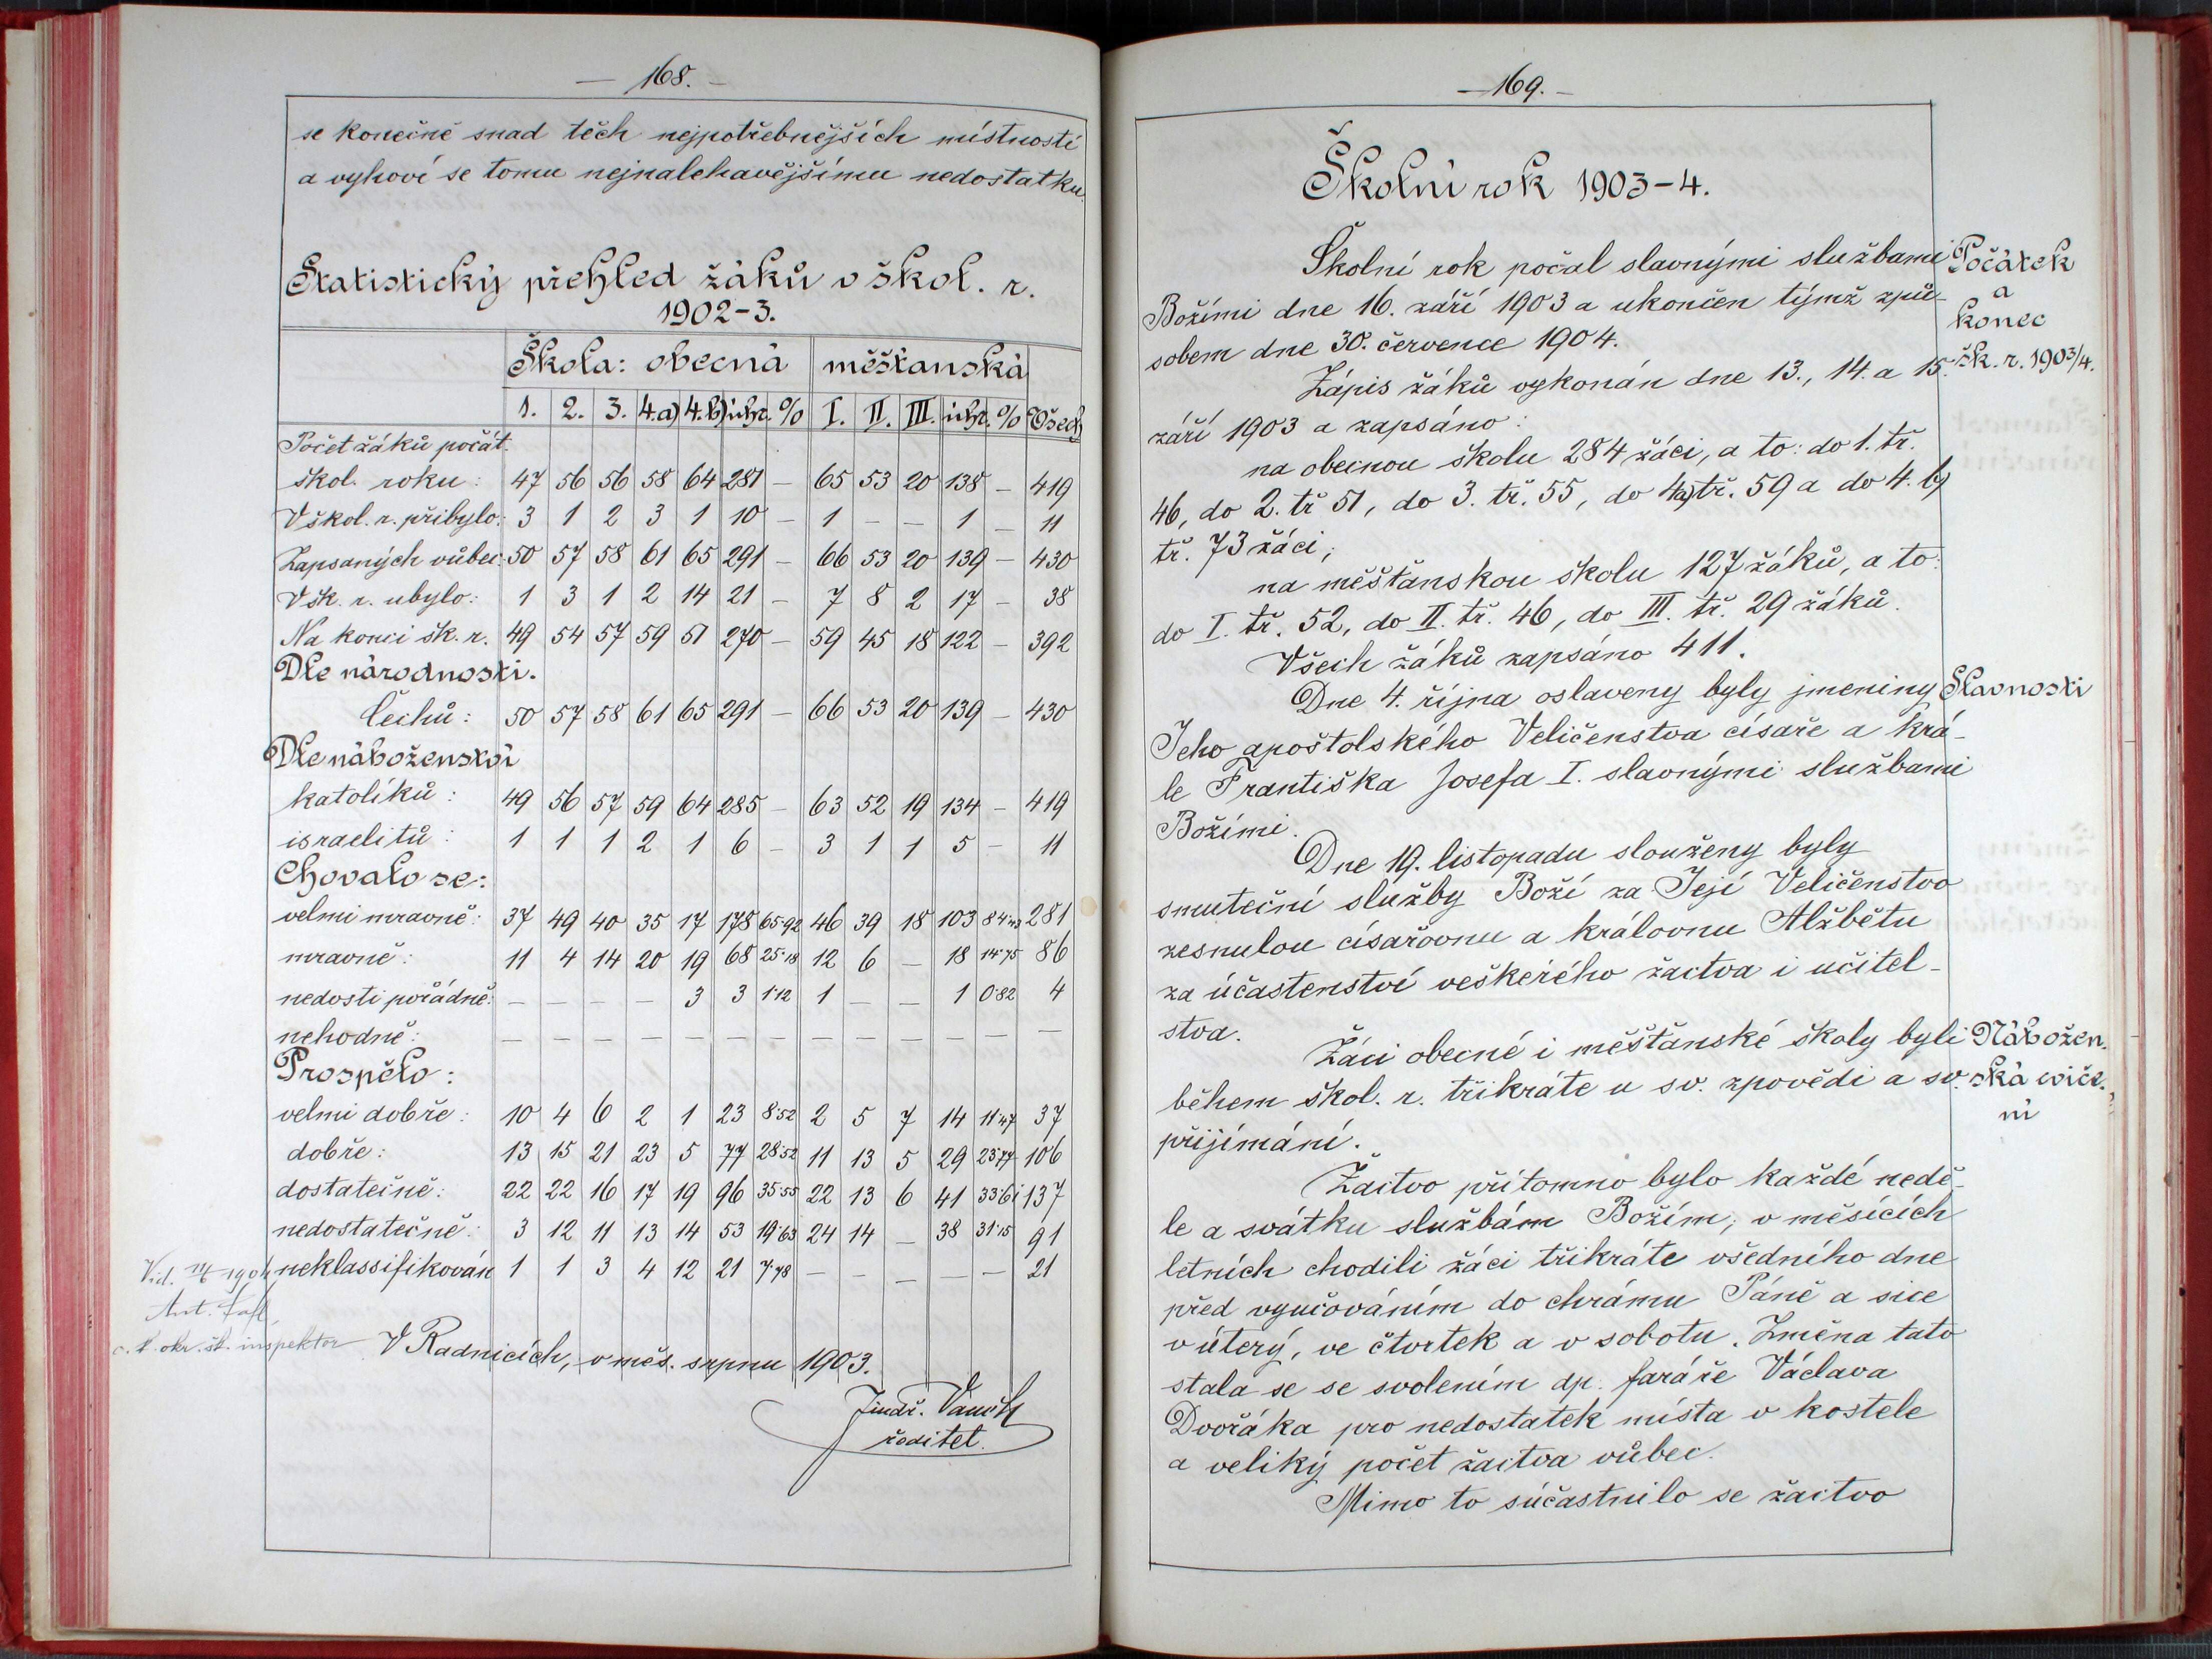 — 168. —
se konečně snad těch nejpotřebnějších místností
a vyhoví se tomu nejnalehavějšímu nedostatku.
Statistický přehled žáků v škol. r.
1902-3.
Škola: obecná měšťanská
1. 2. 3. 4.a) 4.b) úhr. % I. II. III. úhr. % Všech
Počet žáků počát.
škol. roku: 47 56 56 58 64 281 — 65 53 20 138 — 419
V škol. r. přibylo: 3 1 2 3 1 10 — 1 — — 1 — 11
Zapsaných vůbec: 50 57 58 61 65 291 — 66 53 20 139 — 430
V šk. r. ubylo: 1 3 1 2 14 21 — 7 8 2 17 — 38
Na konci šk. r. 49 54 57 59 51 270 — 59 45 18 122 — 392
Dle národnosti.
Čechů: 50 57 58 61 65 291 — 66 53 20 139 — 430
Dle náboženství
katolíků: 49 56 57 59 64 285 — 63 52 19 134 — 419
israelitů: 1 1 1 2 1 6 — 3 1 1 5 — 11
Chovalo se:
velmi mravně: 37 49 40 35 17 178 65·92 46 39 18 103 84·43 281
mravně: 11 4 14 20 19 68 25·18 12 6 — 18 14·75 86
nedosti pořádně: — — — — 3 3 1·12 1 — — 1 0·82 4
nehodně: — — — — — — — — — — — — —
Prospělo:
velmi dobře: 10 4 6 2 1 23 8·52 2 5 7 14 11·47 37
dobře: 13 15 21 23 5 77 28·52 11 13 5 29 23·77 106
dostatečně: 22 22 16 17 19 96 35·55 22 13 6 41 33·61 137
nedostatečně: 3 12 11 13 14 53 19·63 24 14 — 38 31·15 91
neklassifikován 1 1 3 4 12 21 7·78 — — — — — 21
Vid. 1904
Ant.
c. k. okr. šk. inspektor
V Radnicích, v měs. srpnu 1903.
Jindř. Vaněk
ředitel.
— 169. —
Školní rok 1903-4.
Školní rok počal slavnými službami
Božími dne 16. září 1903 a ukončen týmž způ-
sobem dne 30. července 1904.
Počátek
a
konec
šk. r. 1903/4.
Zápis žáků vykonán dne 13., 14. a 15.
září 1903 a zapsáno:
na obecnou školu 284 žáci, a to: do 1. tř.
46, do 2. tř 51, do 3. tř. 55, do 4a) tř. 59 a do 4. b)
tř. 73 žáci;
na měšťanskou školu 127 žáků, a to:
do I. tř. 52, do II. tř. 46, do III. tř. 29 žáků.
Všech žáků zapsáno 411.
Dne 4. října oslaveny byly jmeniny
Slavnosti
Jeho apoštolského Veličenstva císaře a krá-
le Františka Josefa I. slavnými službami
Božími.
Dne 19. listopadu slouženy byly
smuteční služby Boží za Její Veličenstvo
zesnulou císařovnu a královnu Alžbětu
za účastenství veškerého žactva i učitel-
stva.
Žáci obecné i měšťanské školy byli
Nábožen-
ská cviče-
ní
během škol. r. třikráte u sv. zpovědi a sv.
přijímání.
Žactvo přítomno bylo každé nedě-
le a svátku službám Božím; v měsících
letních chodili žáci třikráte všedního dne
před vyučováním do chrámu Páně a sice
v úterý, ve čtvrtek a v sobotu. Změna tato
stala se se svolením dp. faráře Václava
Dvořáka pro nedostatek místa v kostele
a veliký počet žactva vůbec.
Mimo to súčastnilo se žactvo